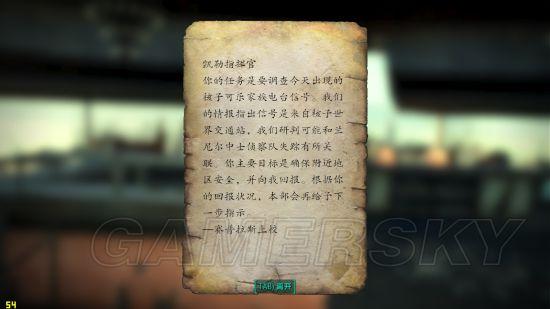 凯勒指挥官
你的任务是要调查今天出现的
核子可乐家族电台信号。我们
的情报指出信号是来自核子世
界交通站，我们研判可能和兰
尼尔中士侦察队失踪有所关
联。你主要目标是确保附近地
区安全，并向我回报。根据你
的回报状况，本部会再给予下
一步指示
—赛普拉斯上校
GAMERSKY
TAB) 离开
54